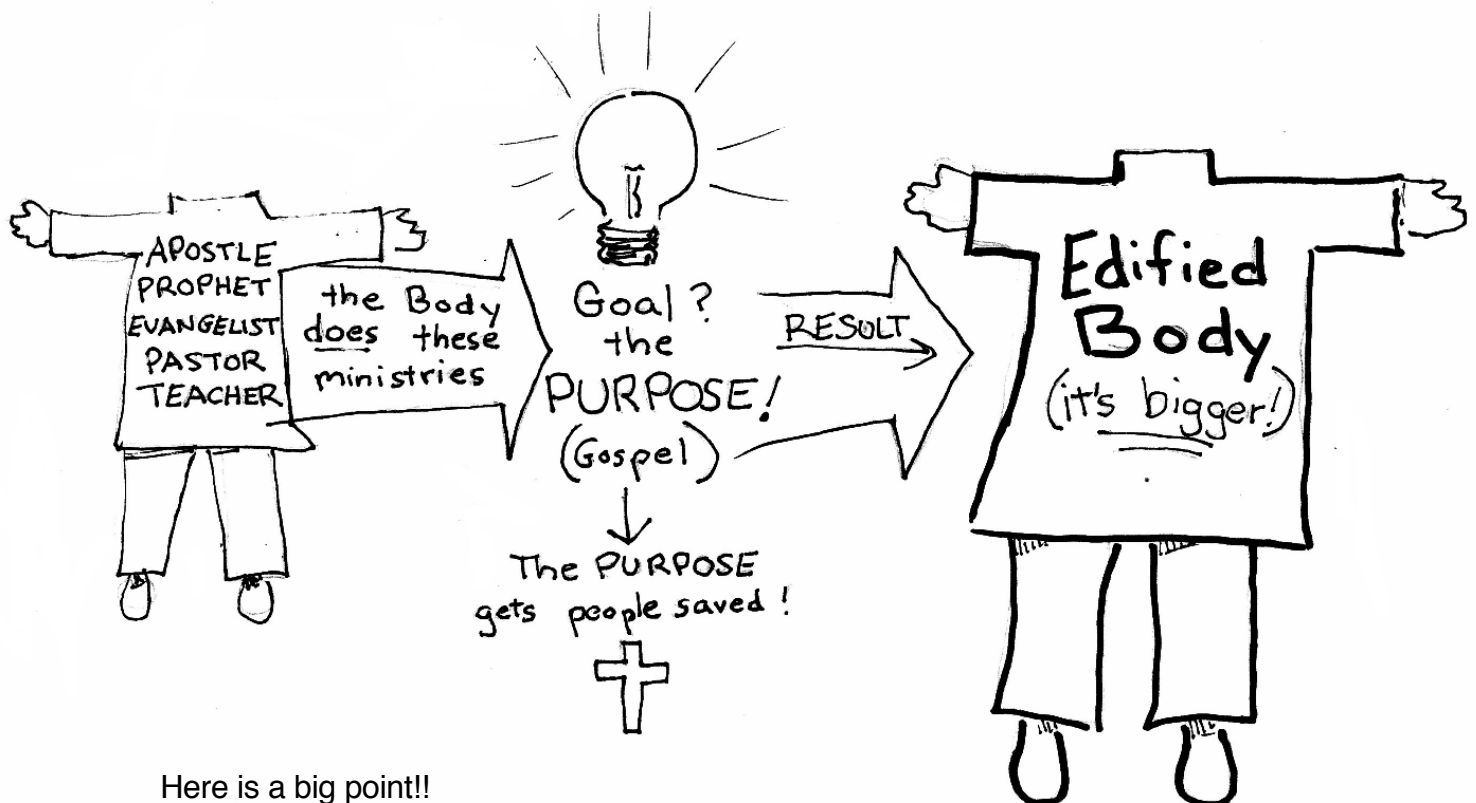 APOSTLE
PROPHET
EVANGELIST
PASTOR
TEACHER
the Body
does these
ministries
Goal?
the
PURPOSE!
(Gospel)
The PURPOSE
gets people saved!
RESULT
Edified
Body
(it's bigger!)
Here is a big point!!